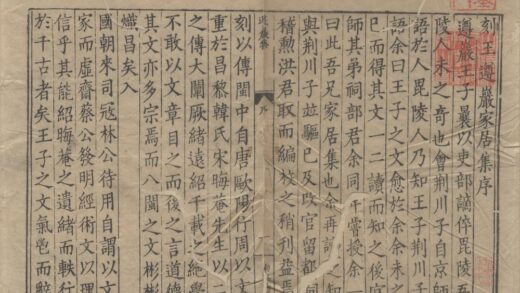 刻王遵巖家居集序
遵巖王子曩以吏部謫倅毘陵吾
陵人未之奇也會荆川子自京師
語於人毘陵人乃知王子荆川子
語余曰王子之文愈於余余未之
已而得其文一二讀而知之後官
師其弟祠部君余同年嘗授余一
曰此吾兄家居集也余再讀之知
與荆川子並驅已及改官留都
稽勲洪君取而編校之稍刋益焉
序
刻以傳閩中自唐歐陽行周以文
重於昌黎韓氏宋晦菴先生以二
之傳大闡厥緒遠紹千載之絶學
不敢以文章目之而後之言道德
其文亦多宗焉而八閩之文彬彬
熾昌矣入
國朝來司冦林公待用自謂以文
家而虛齋蔡公發明經術文以理
信乎其能紹晦菴之遺緒而軼行
於千古者矣王子之文氣